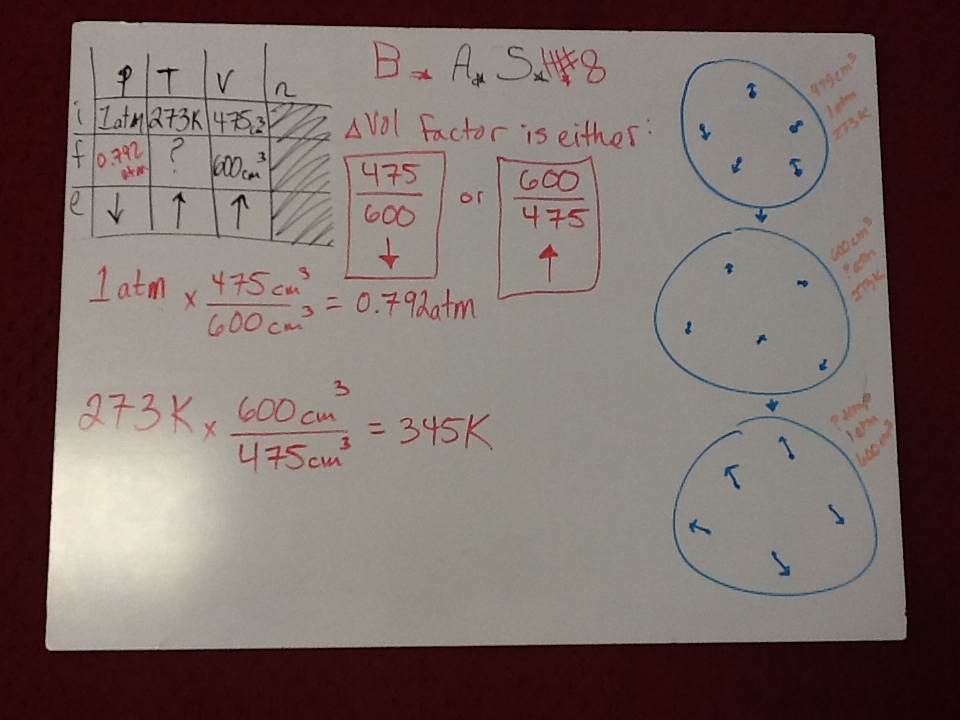 P T V n
i 1atm 273K 475cm³
f 0.792 atm ? 600cm³
e ↓ ↑ ↑
B. A. S. #8
ΔVol factor is either:
475/600 ↓ or 600/475 ↑
1atm x 475cm³/600cm³ = 0.792atm
273K x 600cm³/475cm³ = 345K
475cm³
1atm
273K
600cm³
? atm
273K
? temp
1atm
600cm³